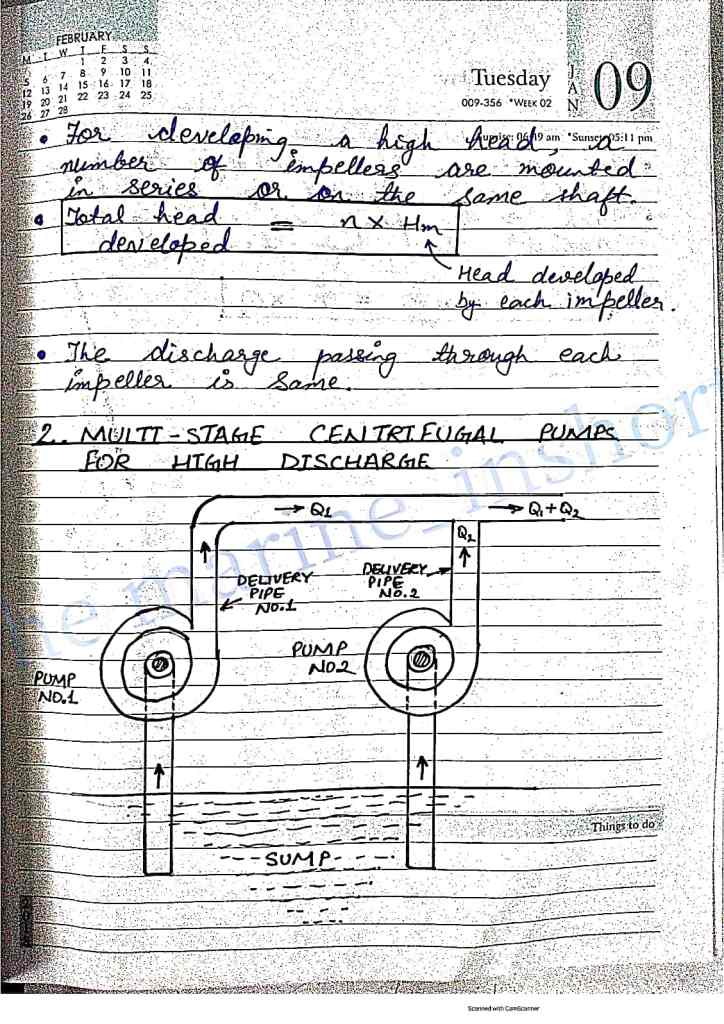 FEBRUARY
M T W T F S S
1 2 3 4
5 6 7 8 9 10 11
12 13 14 15 16 17 18
19 20 21 22 23 24 25
26 27 28
Tuesday
009-356 *WEEK 02
JAN
09
Sunrise: 06:49 am *Sunset: 05:11 pm
• For developing a high head, a
number of impellers are mounted
in series or on the same shaft.
• Total head
developed = n × Hm
Head developed
by each impeller.
• The discharge passing through each
impeller is same.
2. MULTI-STAGE CENTRIFUGAL PUMPS
FOR HIGH DISCHARGE
→ Q1
→ Q1+Q2
Q2
DELIVERY
PIPE
NO.1
DELIVERY
PIPE
NO.2
PUMP
NO.1
PUMP
NO.2
SUMP
Things to do
he marine_inshor
Scanned with CamScanner